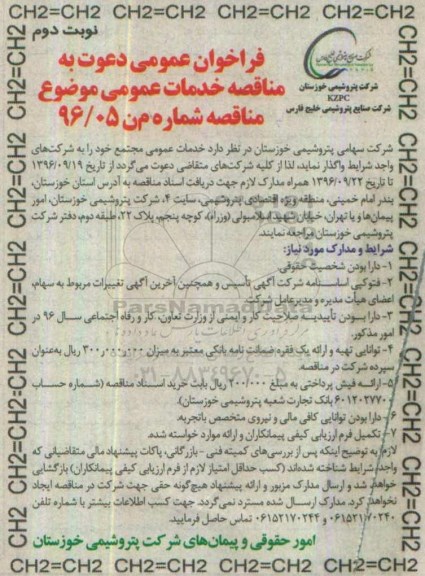 CH2=CH2 CH2=CH2 CH2=CH2 CH2=CH2 CH2=CH2
نوبت دوم
شرکت پتروشیمی خوزستان
KZPC
شرکت صنایع پتروشیمی خلیج فارس
فراخوان عمومی دعوت به
مناقصه خدمات عمومی موضوع
مناقصه شماره م‌ن ۹۶/۰۵
شرکت سهامی پتروشیمی خوزستان در نظر دارد خدمات عمومی مجتمع خود را به شرکت‌های
واجد شرایط واگذار نماید، لذا از کلیه شرکت‌های متقاضی دعوت می‌گردد از تاریخ ۱۳۹۶/۰۹/۱۹
تا تاریخ ۱۳۹۶/۰۹/۲۲ همراه مدارک لازم جهت دریافت اسناد مناقصه به آدرس استان خوزستان،
بندر امام خمینی، منطقه ویژه اقتصادی پتروشیمی، سایت ۴، شرکت پتروشیمی خوزستان، امور
پیمان‌ها و یا تهران، خیابان شهید اسلامبولی (وزراء)، کوچه پنجم، پلاک ۲۲، طبقه دوم، دفتر شرکت
پتروشیمی خوزستان مراجعه نمایند.
شرایط و مدارک مورد نیاز:
۱- دارا بودن شخصیت حقوقی.
۲- فتوکپی اساسنامه شرکت آگهی تأسیس و همچنین آخرین آگهی تغییرات مربوط به سهام،
اعضای هیأت مدیره و مدیرعامل شرکت.
۳- دارا بودن تأییدیه صلاحیت کار و ایمنی از وزارت تعاون، کار و رفاه اجتماعی سال ۹۶ در
امور مذکور.
۴- توانایی تهیه و ارائه یک فقره ضمانت نامه بانکی معتبر به میزان ۳۰۰,۰۰۰,۰۰۰ ریال به‌عنوان
سپرده شرکت در مناقصه.
۵- ارائه فیش پرداختی به مبلغ ۲۰۰/۰۰۰ ریال بابت خرید اسناد مناقصه (شماره حساب
۶۰۱۲۰۲۷۷۰ بانک تجارت شعبه پتروشیمی خوزستان).
۶- دارا بودن توانایی کافی مالی و نیروی متخصص باتجربه.
۷- تکمیل فرم ارزیابی کیفی پیمانکاران و ارائه موارد خواسته شده.
لازم به توضیح اینکه پس از بررسی‌های کمیته فنی - بازرگانی، پاکات پیشنهاد مالی متقاضیانی که
واجد شرایط شناخته شده‌اند (کسب حداقل امتیاز لازم از فرم ارزیابی کیفی پیمانکاران) بازگشایی
خواهد شد و ارسال مدارک مزبور و ارائه پیشنهاد هیچ‌گونه حقی جهت شرکت در مناقصه ایجاد
نخواهد کرد. مدارک ارسال شده مسترد نمی‌گردد. جهت کسب اطلاعات بیشتر با شماره تلفن
۰۶۱۵۲۱۷۰۲۴۰ و ۰۶۱۵۲۱۷۰۲۴۴ تماس حاصل فرمایید.
امور حقوقی و پیمان‌های شرکت پتروشیمی خوزستان
ParsNamadData
۰۲۱-۸۸۳۴۹۶۷۰-۵
CH2=CH2 CH2=CH2 CH2=CH2 CH2=CH2 CH2=CH2